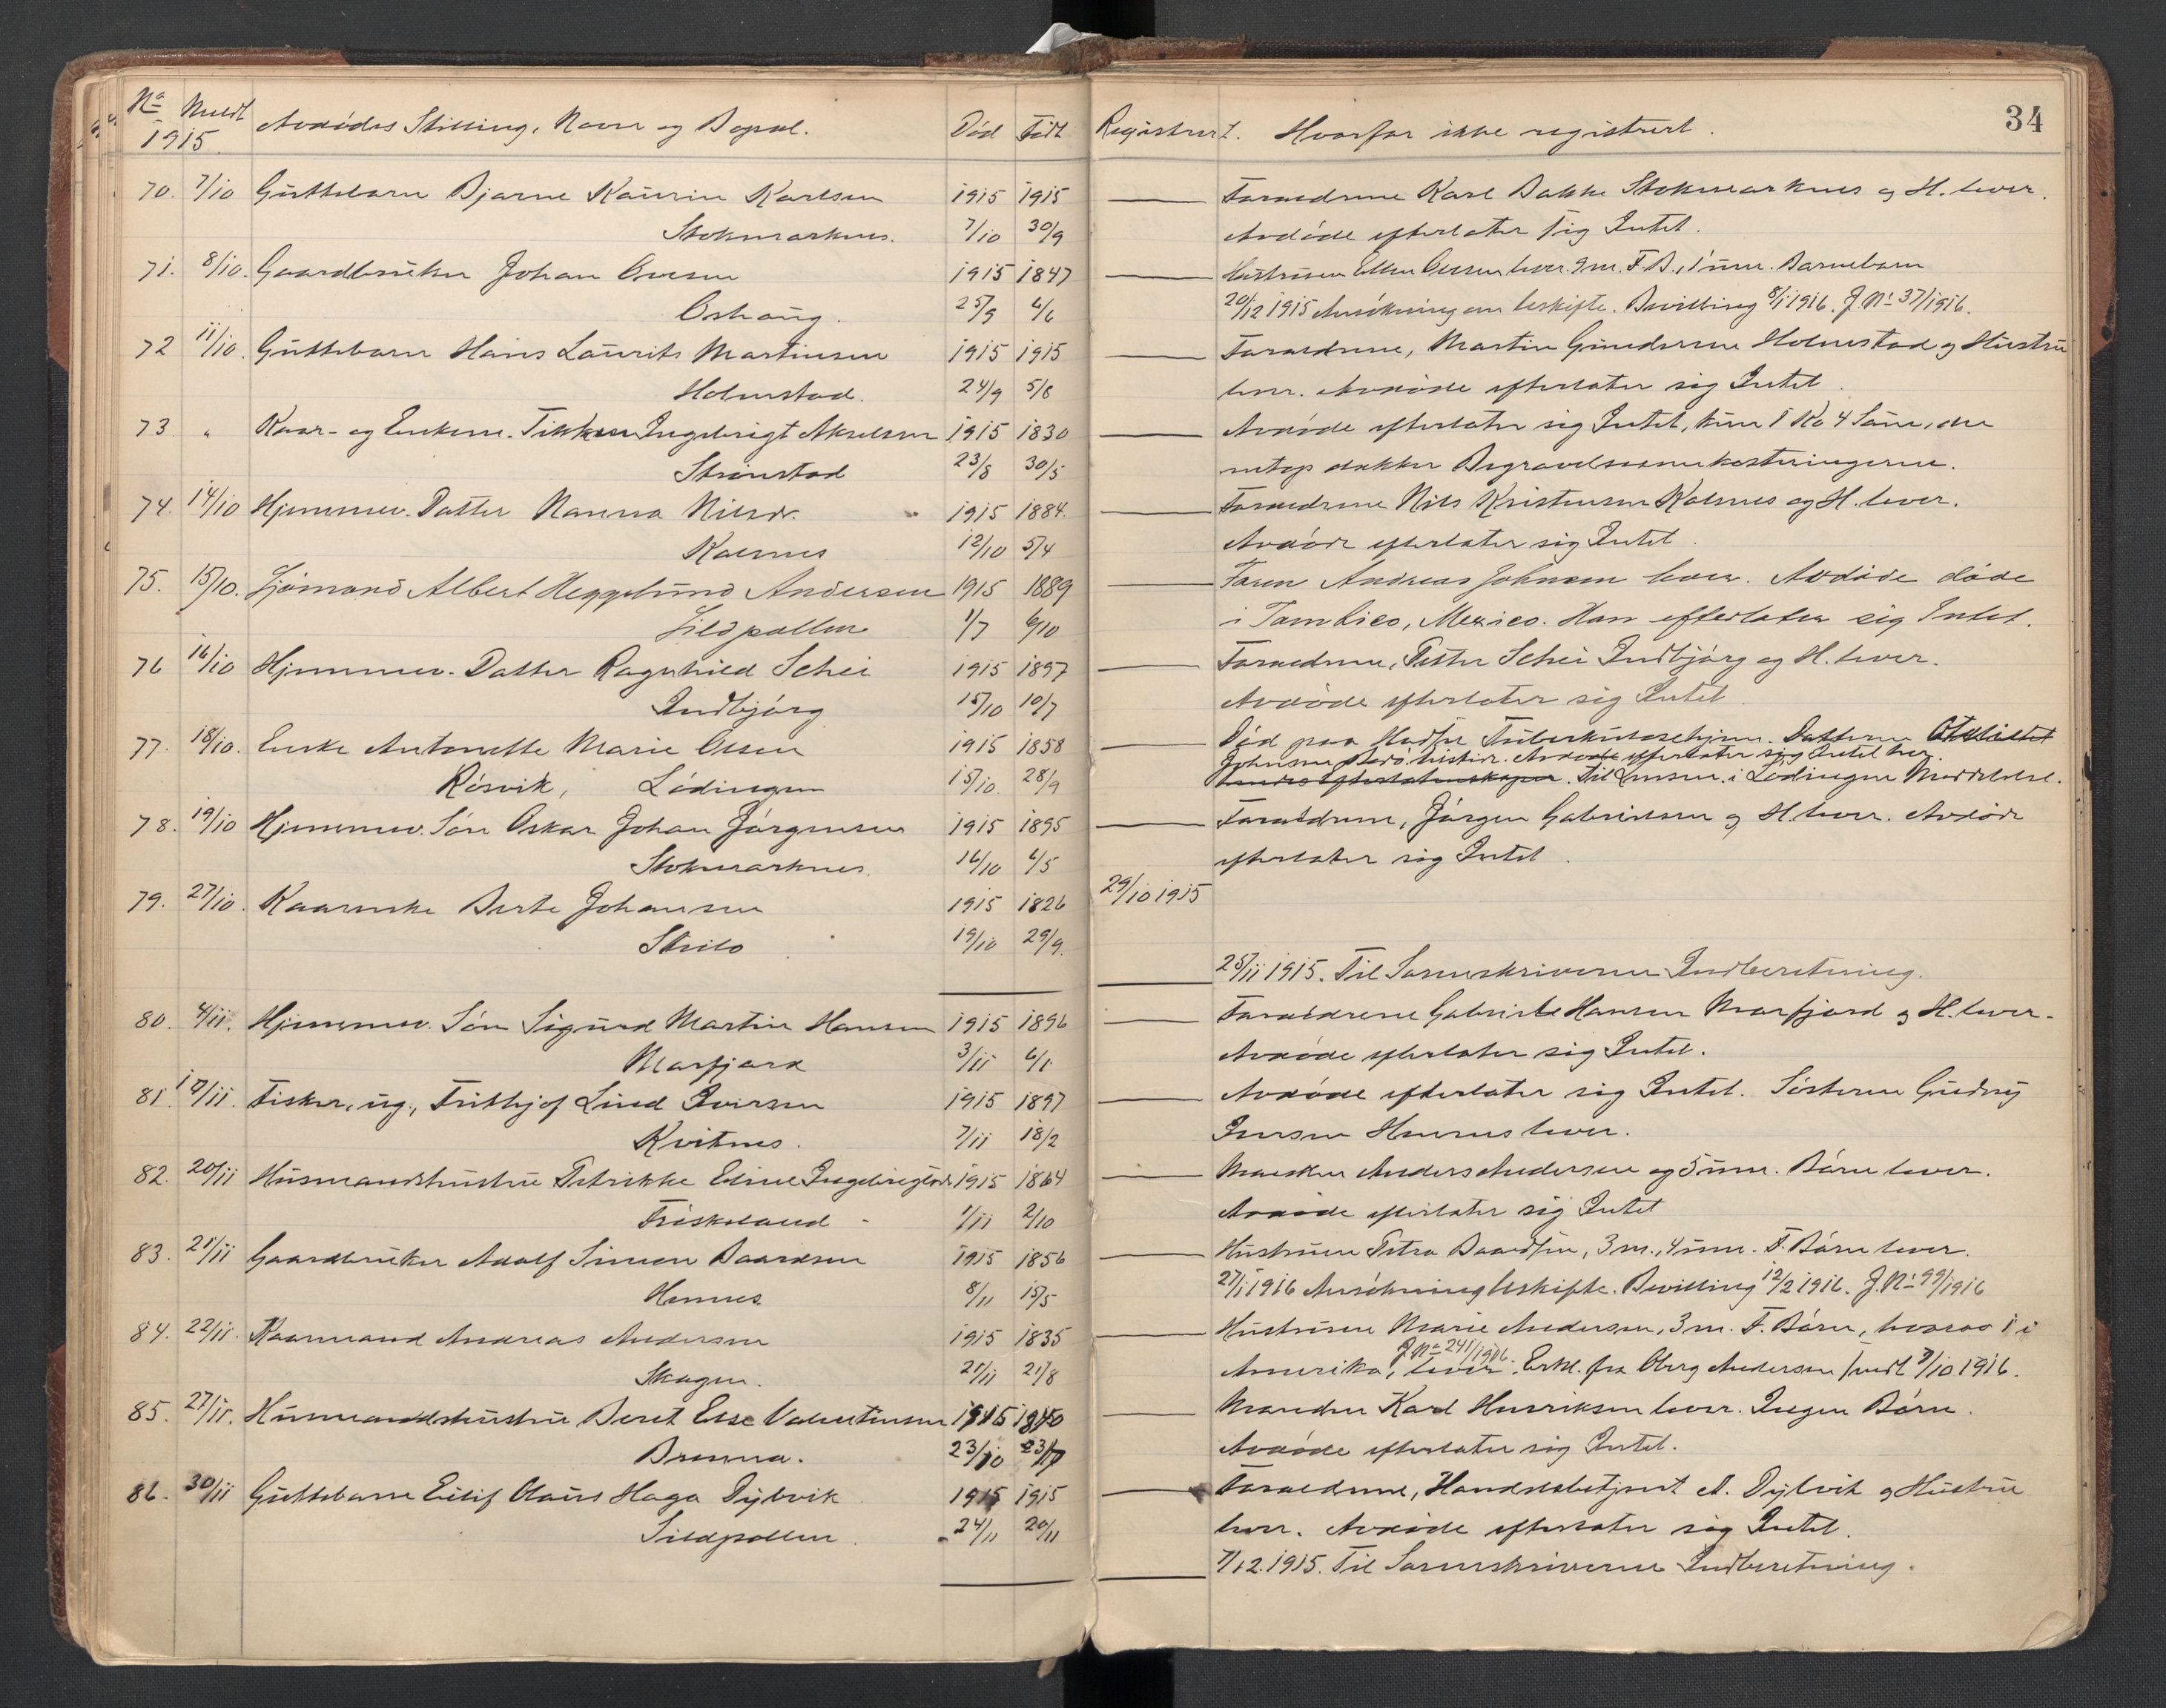 34
No Meldt Avdødes Stilling, Navn og Bopæl. Død Født Registrert. Hvorfor ikke registrert.
1915
70. 7/10 Guttebarn Bjarne Kaurin Karlsen 1915 1915 Forældrene Karl Bakke Stokmarknes og H. lever.
Stokmarknes. 7/10 30/9 Avdøde efterlater sig Intet.
71. 8/10. Gaardbruker Johan Olesen 1915 1847 Hustruen Ellen Olesen lever. 9 m. F. B., 1 um. Barnebarn
Oshaug. 25/9 6/6 20/12 1915 Ansökning om Uskifte. Bevilling 8/1 1916. J. No 37/1916.
72 11/10. Guttebarn Hans Laurits Martinsen 1915 1915 Forældrene, Martin Gundersen Holmstad og Hustru
Holmstad. 24/9 5/8 lever. Avdøde efterlater sig Intet.
73 " Kaar- og Enkem. Ingebrigt Akselsen 1915 1830 Avdøde efterlater sig Intet, kun 1 Ko 4 Sauer, der
Strønstad 23/8 30/5 netop dækker Begravelsesomkostningerne.
74. 14/10 Hjemmev. Datter Nanna Nilsdr. 1915 1884. Forældrene Nils Kristensen Kalsnes og H. lever.
Kalsnes 12/10 5/4 Avdøde efterlater sig Intet.
75. 15/10. Sjømand Albert Hegglund Andersen 1915 1889 Faren Andreas Johnsen lever. Avdøde døde
Sildpollen 1/7 6/10 i Tambico, Mexico. Han efterlater sig Intet.
76 16/10 Hjemmev. Datter Ragnhild Schei 1915 1897 Forældrene, Petter Schei Indbjørg og H. lever.
Indbjørg 15/10 10/7 Avdøde efterlater sig Intet
77. 18/10. Enke Antonette Marie Olsen 1915 1858 Død paa Hadsel Tuberkulosehjem. Datteren
Johnsen Bodø Avdøde efterlater sig Intet her.
Røsvik, Lødingen 15/10. 28/9 Til Lensm. i Lødingen Meddelelse.
78. 19/10 Hjemmev. Søn Oskar Johan Jørgensen 1915 1895 Forældrene, Jørgen Gabrielsen og H. lever. Avdøde
Stokmarknes. 16/10 6/5 efterlater sig Intet.
79. 27/10. Kaarenke Berte Johansen 1915 1826 29/10 1915
Strilo 19/10 29/9.
25/11 1915. Til Sorenskriveren Indberetning.
80. 4/11. Hjemmev. Søn Sigurd Martin Hansen 1915 1896 Forældrene Hansen Morfjord og H. lever.
Morfjord 3/11 6/1. Avdøde efterlater sig Intet.
81. 10/11. Fisker, ug., Frithjof Lind Iversen 1915 1897 Avdøde efterlater sig Intet. Søsteren Gudny
Kvitnes. 7/11 18/2 Iversen Hennes lever.
82. 20/11 Husmandshustru Petrikke Eline Ingebrigtsdr. 1915 1864 Manden Anders Andersen og 5 um. Børn lever.
Frøskeland 1/11 2/10 Avdøde efterlater sig Intet
83. 21/11 Gaardbruker Adolf Simon Baardsen 1915 1856 Hustruen Petra Baardsen, 3 m., 4 um. F. Børn lever.
Hennes. 8/11 15/5 27/1 1916 Ansökning Uskifte. Bevilling 12/2 1916. J. No 99/1916
84. 22/11. Kaarmand Andreas Andersen 1915 1835 Hustruen Marie Andersen, 3 m. F. Børn, hvorav 1 i
J. No 241/1916.
Skagen. 21/11 21/8 Amerika, lever. Erkl. fra Oberg Andersen 1916.
85. 27/11. Husmandshustru Beret Else Valentinsen 1915 1840 Manden Karl Henriksen lever. Ingen Børn.
Brenna. 23/10 23/7 Avdøde efterlater sig Intet.
86. 30/11 Guttebarn Eilif Claus Haga Dybvik 1915 1915 Forældrene, Handelsbetjent A. Dybvik og Hustru
Sildpollen. 24/11 20/11 lever. Avdøde efterlater sig Intet.
7/12. 1915. Til Sorenskriveren Indberetning.